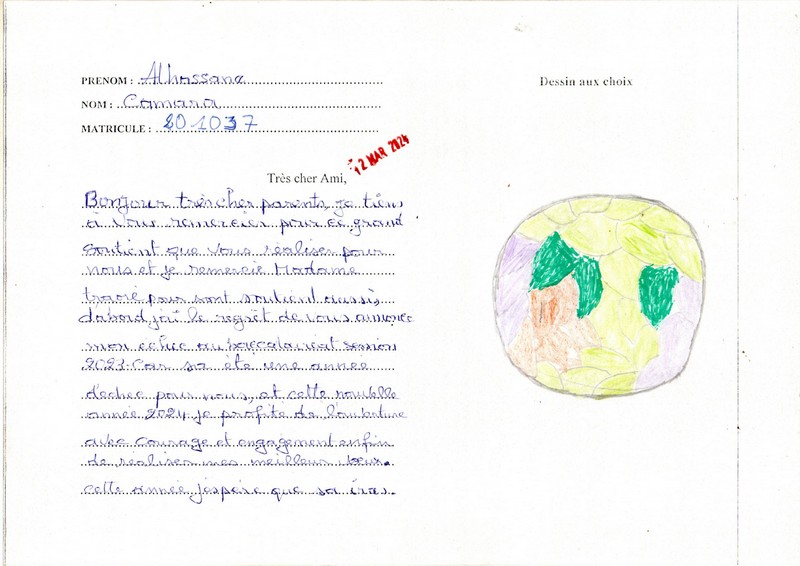 PRENOM : Alhassane
NOM : Camara
MATRICULE : 201037
Dessin aux choix
12 MAR 2024
Très cher Ami,
Bonjour très cher parents, je tiens
à vous remercier pour ce grand
soutient que vous réaliser pour
nous et je remercie Madame
traoré pour sont soutient aussi,
d'abord, j'ai le regret de vous annoncé
mon echec au baccalauréat session
2023. Car sa été une année
d'echec pour nous, et cette nouvelle
année 2024 je profite de l'ouverture
avec courage et engagement enfin
de réaliser mes meilleur vœux.
cette année j'espère que sa iras.